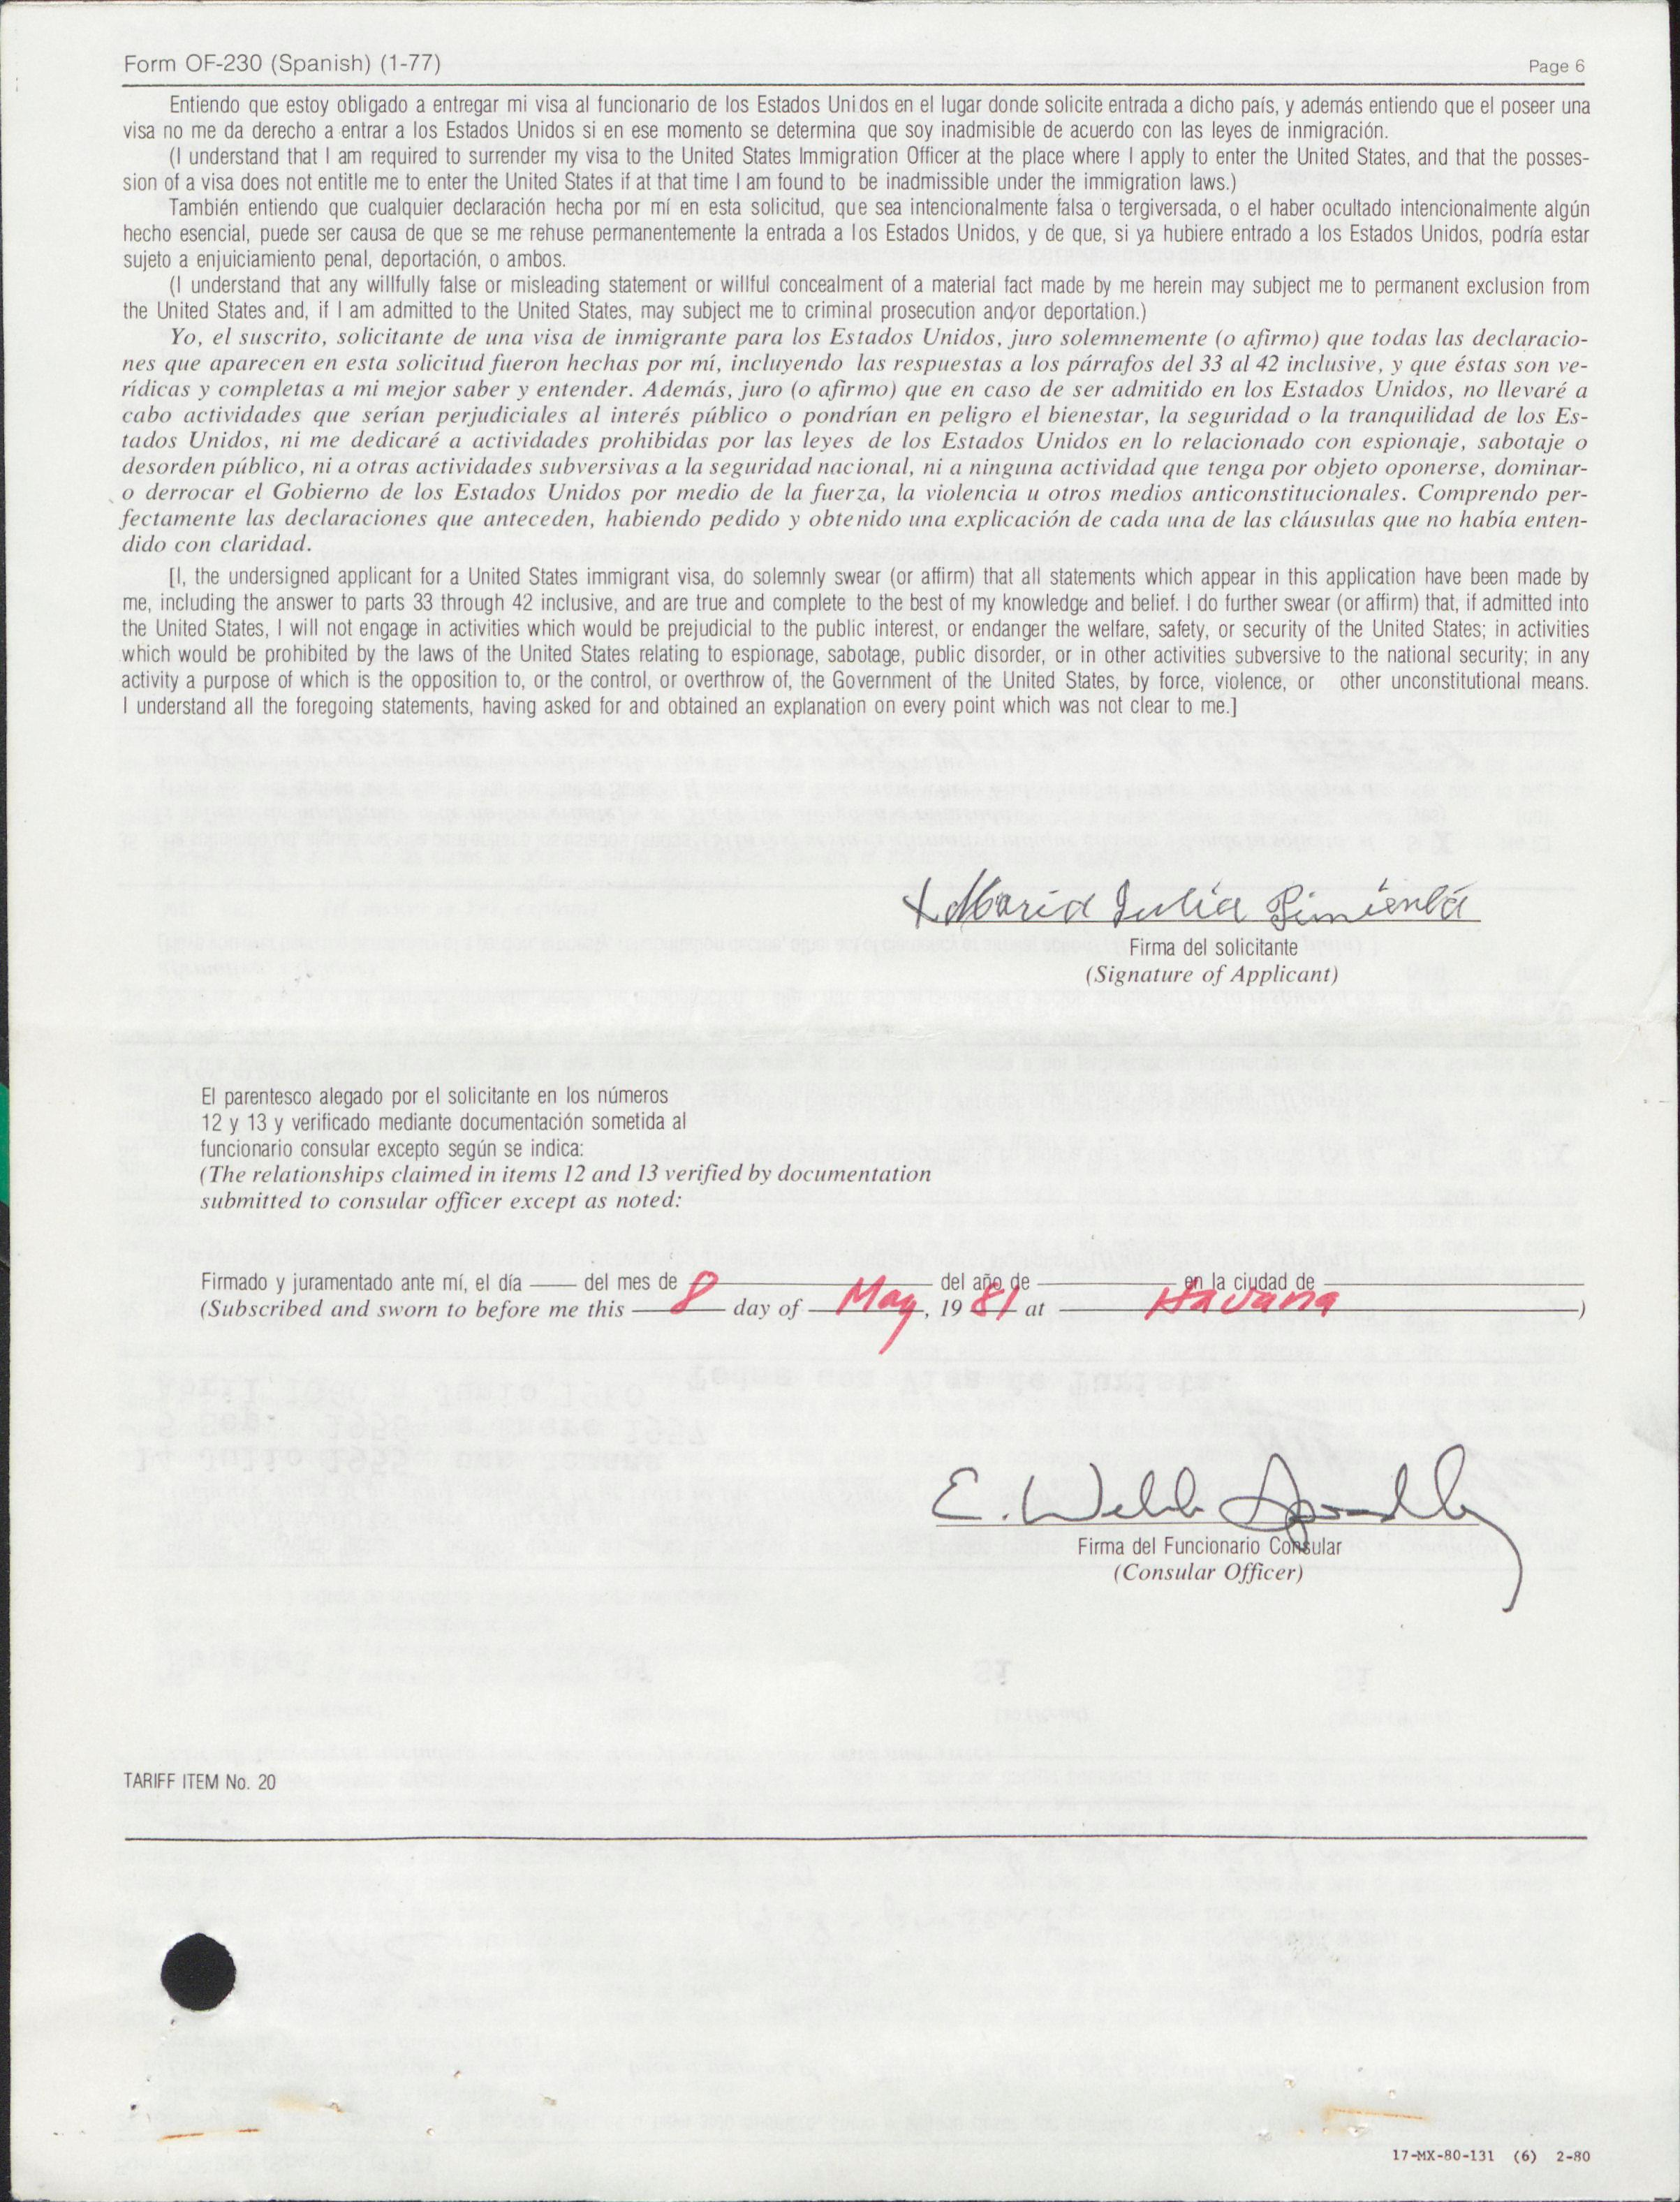 Form OF-230 (Spanish) (1-77)
Page 6
Entiendo que estoy obligado a entregar mi visa al funcionario de los Estados Unidos en el lugar donde solicite entrada a dicho país, y además entiendo que el poseer una
visa no me da derecho a entrar a los Estados Unidos si en ese momento se determina que soy inadmisible de acuerdo con las leyes de inmigración.
(I understand that I am required to surrender my visa to the United States Immigration Officer at the place where I apply to enter the United States, and that the posses-
sion of a visa does not entitle me to enter the United States if at that time I am found to be inadmissible under the immigration laws.)
También entiendo que cualquier declaración hecha por mí en esta solicitud, que sea intencionalmente falsa o tergiversada, o el haber ocultado intencionalmente algún
hecho esencial, puede ser causa de que se me rehuse permanentemente la entrada a los Estados Unidos, y de que, si ya hubiere entrado a los Estados Unidos, podría estar
sujeto a enjuiciamiento penal, deportación, o ambos.
(I understand that any willfully false or misleading statement or willful concealment of a material fact made by me herein may subject me to permanent exclusion from
the United States and, if I am admitted to the United States, may subject me to criminal prosecution and/or deportation.)
Yo, el suscrito, solicitante de una visa de inmigrante para los Estados Unidos, juro solemnemente (o afirmo) que todas las declaracio-
nes que aparecen en esta solicitud fueron hechas por mí, incluyendo las respuestas a los párrafos del 33 al 42 inclusive, y que éstas son ve-
rídicas y completas a mi mejor saber y entender. Además, juro (o afirmo) que en caso de ser admitido en los Estados Unidos, no llevaré a
cabo actividades que serían perjudiciales al interés público o pondrían en peligro el bienestar, la seguridad o la tranquilidad de los Es-
tados Unidos, ni me dedicaré a actividades prohibidas por las leyes de los Estados Unidos en lo relacionado con espionaje, sabotaje o
desorden público, ni a otras actividades subversivas a la seguridad nacional, ni a ninguna actividad que tenga por objeto oponerse, dominar-
o derrocar el Gobierno de los Estados Unidos por medio de la fuerza, la violencia u otros medios anticonstitucionales. Comprendo per-
fectamente las declaraciones que anteceden, habiendo pedido y obtenido una explicación de cada una de las cláusulas que no había enten-
dido con claridad.
[I, the undersigned applicant for a United States immigrant visa, do solemnly swear (or affirm) that all statements which appear in this application have been made by
me, including the answer to parts 33 through 42 inclusive, and are true and complete to the best of my knowledge and belief. I do further swear (or affirm) that, if admitted into
the United States, I will not engage in activities which would be prejudicial to the public interest, or endanger the welfare, safety, or security of the United States; in activities
which would be prohibited by the laws of the United States relating to espionage, sabotage, public disorder, or in other activities subversive to the national security; in any
activity a purpose of which is the opposition to, or the control, or overthrow of, the Government of the United States, by force, violence, or other unconstitutional means.
I understand all the foregoing statements, having asked for and obtained an explanation on every point which was not clear to me.]
X Maria Julia Pimienta
Firma del solicitante
(Signature of Applicant)
El parentesco alegado por el solicitante en los números
12 y 13 y verificado mediante documentación sometida al
funcionario consular excepto según se indica:
(The relationships claimed in items 12 and 13 verified by documentation
submitted to consular officer except as noted:
Firmado y juramentado ante mí, el día del mes de del año de en la ciudad de
(Subscribed and sworn to before me this 8 day of May, 19 81 at Havana)
E. Webb
Firma del Funcionario Consular
(Consular Officer)
TARIFF ITEM No. 20
17-MX-80-131 (6) 2-80